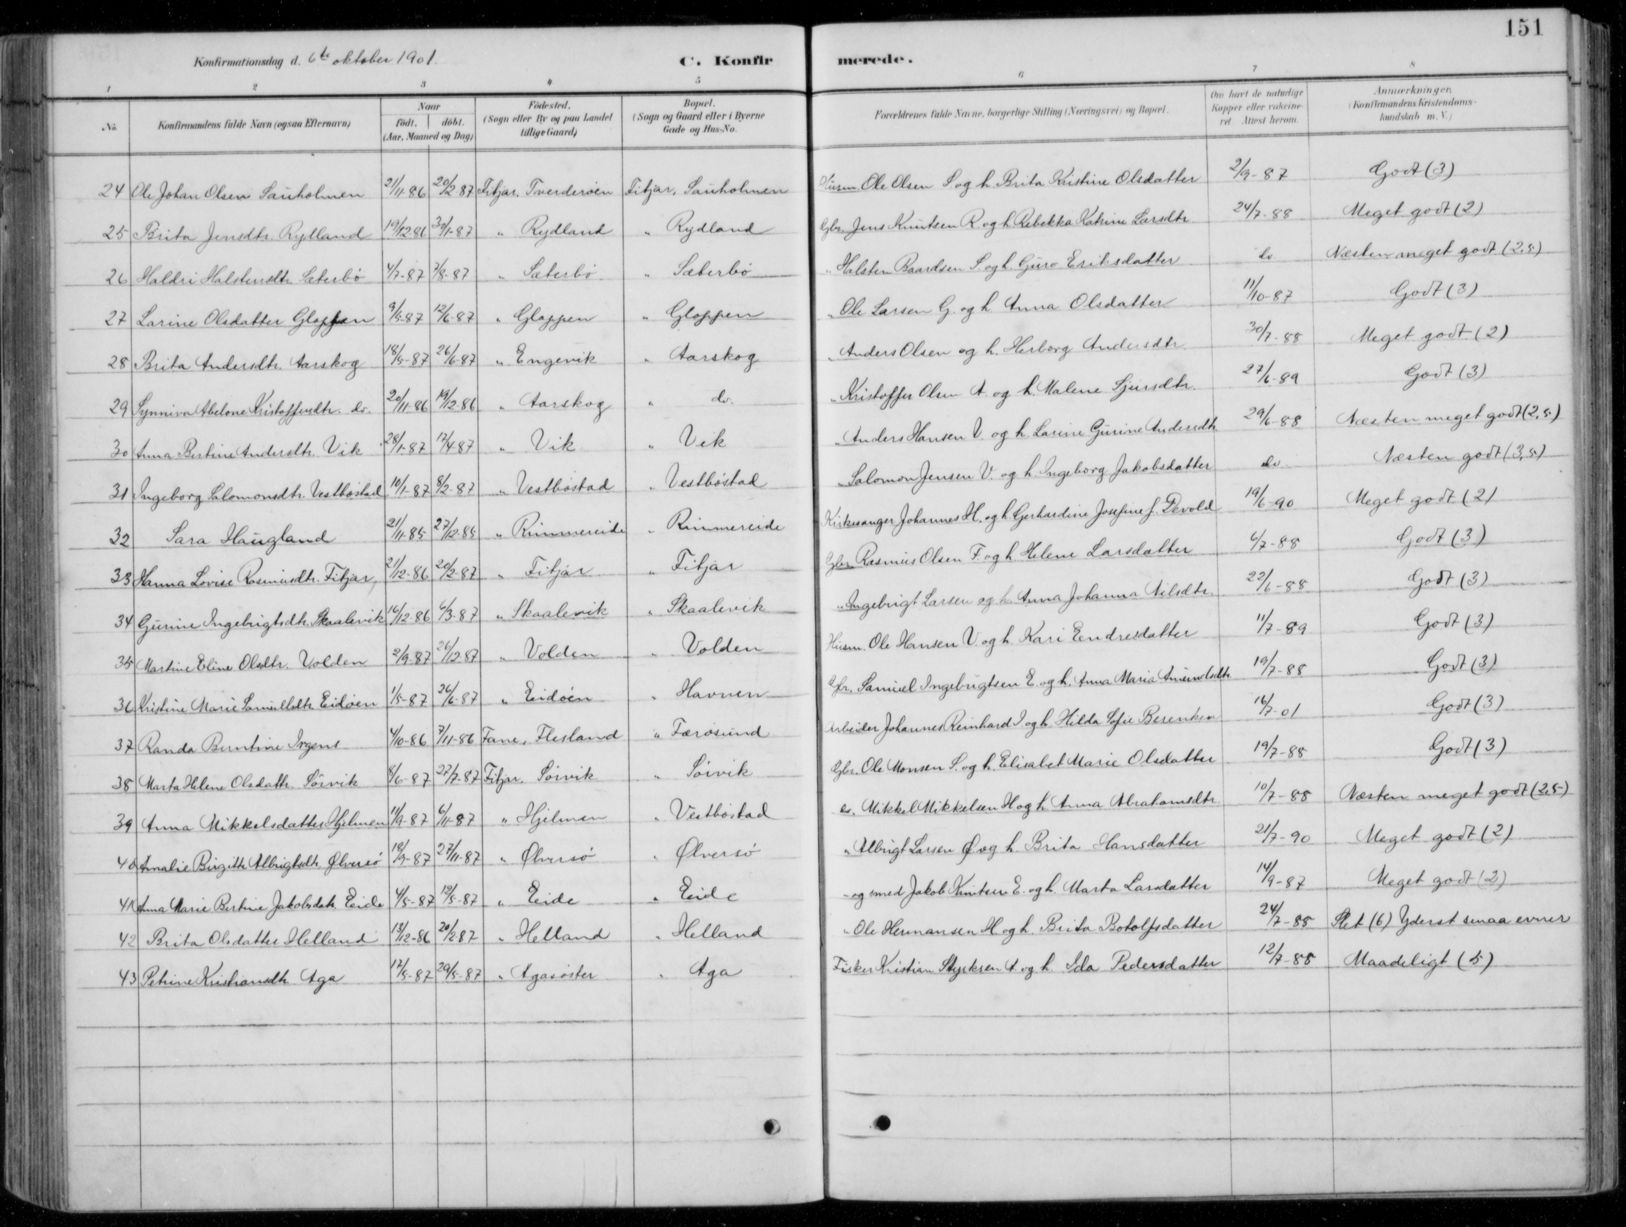 151
Konfirmationsdag d. 6te oktober 1901. C. Konfirmerede.
1 2 3 4 5 6 7 8
No. Konfirmandens fulde Navn (ogsaa Efternavn) Naar födt. döbt. (Aar, Maaned og Dag) Födested. (Sogn eller By og paa Landet tillige Gaard) Bopæl. (Sogn og Gaard eller i Byerne Gade og Hus-No. Forældrenes fulde Navne, borgerlige Stilling (Næringsvei) og Bopæl. Om havt de naturlige Kopper eller vakcineret. Attest herom. Anmærkninger, (Konfirmandens Kristendomskundskab m. V.)
24 Ole Johan Olsen Sauholmen 21/11-86 20/2-87 Fitjar, Tverderöen Fitjar, Sauholmen Husm Ole Olsen S og h. Brita Kristine Olsdatter 2/9-87 Godt (3)
25 Brita Jensdtr. Rydland 19/12 86 30/1-87 " Rydland " Rydland Gbr. Jens Knutsen R og h Rebekka Katrine Larsdtr 24/7-88 Meget godt (2)
26 Haldri Halstensdtr. Sæterbö 4/7-87 7/8-87 " Sæterbö " Sæterbö " Halsten Baardsen S og h. Guro Eriksdatter do Næsten meget godt (2,5)
27 Larine Olsdatter Gloppen 9/5-87 12/6-87 " Gloppen " Gloppen " Ole Larsen G. og h Anna Olsdatter 11/10-87 Godt (3)
28 Brita Andersdtr. Aarskog 18/5-87 26/6-87 " Engevik " Aarskog " Anders Olsen og h. Herborg Andersdtr 30/7-88 Meget godt (2)
29 Synniva Abelone Kristoffersdtr. do. 20/11-86 19/12-86 " Aarskog " do. " Kristoffer Olsen A. og h. Malene Sjursdtr. 27/6-89 Godt (3)
30 Anna Bertine Andersdtr. Vik 28/1-87 12/4-87 " Vik " Vik " Anders Hansen V. og h. Larine Gurine Andersdtr 29/6-88 Næsten meget godt (2,5)
31 Ingeborg Salomonsdtr. Vestbøstad 10/1-87 8/2-87 " Vestbøstad " Vestbøstad " Salomon Jensen V. og h. Ingeborg Jakobsdatter do Næsten godt (3,5)
32 Sara Haugland 21/11-85 27/12-85 " Rimmereide " Rimmereide Kirkesanger Johannes H. og h Gerhardine Josefine f. Devold 19/6-90 Meget godt (2)
33 Hanna Lovise Rasmusdtr. Fitjar 21/12-86 20/2-87 " Fitjar " Fitjar Gbr. Rasmus Olsen F og h Helene Larsdatter 6/7-88 Godt (3)
34 Gurine Ingebrigtsdtr. Skaalevik 16/12-86 6/3-87 " Skaalevik " Skaalevik " Ingebrigt Larsen og h Anna Johanna Nilsdtr. 22/6-88 Godt (3)
35 Martine Eline Olsdtr. Volden 2/9-87 26/12 87 " Volden " Volden Husm. Ole Hansen V og h. Kari Endresdatter 11/7-89 Godt (3)
36 Kristine Marie Samuelsdtr Eidöen 1/5-87 26/6-87 " Eidöen " Havnen Gbr. Samuel Ingebrigtsen E. og h. Anna Maria 19/7-88 Godt (3)
37 Randa Berntine Irgens 4/10-86 7/11-86 Fane, Flesland " Færösund Arbeider Johannes Reinhard I og h. Hilda Sofie Berentsen 16/7-01 Godt (3)
38 Marta Helene Olsdatter. Sörvik 8/6-87 27/7-87 Fitjar. Sörvik " Sörvik Gbr. Ole Monsen S. og h. Elisabet Marie Olsdatter 19/7-88 Godt (3)
39 Anna Mikkelsdatter Hjelmen 11/9-87 6/11-87 " Hjelmen " Vestbøstad do. Mikkel Mikkelsen H og h Anna Abrahamsdtr 10/7-88 Næsten meget godt (2,5)
40 Amalie Birgitte Albrigtsdtr. Ølversö 18/9-87 27/11-87 " Ølversö " Ølversö " Albrigt Larsen Ø og h. Brita Hansdatter 21/7-90 Meget godt (2)
41 Anna Marie Bertine Jakobsdtr Eide 4/5-87 19/5-87 " Eide " Eide - og smed Jakob Knutsen E. og h. Marta Larsdatter 14/9-87 Meget godt (2)
42 Brita Olsdatter Helland 13/12-86 20/2 87 " Helland " Helland " Ole Hermansen H og h. Brita Botolfsdatter 24/7-88 Slet (6) Yderst smaa evner
43 Petrine Kristiansdtr. Aga 12/5-87 29/5-87 " Agasöster " Aga Fisker Kristian Styrksen A og h. Ida Pedersdatter 12/7-88 Maadeligt (5)